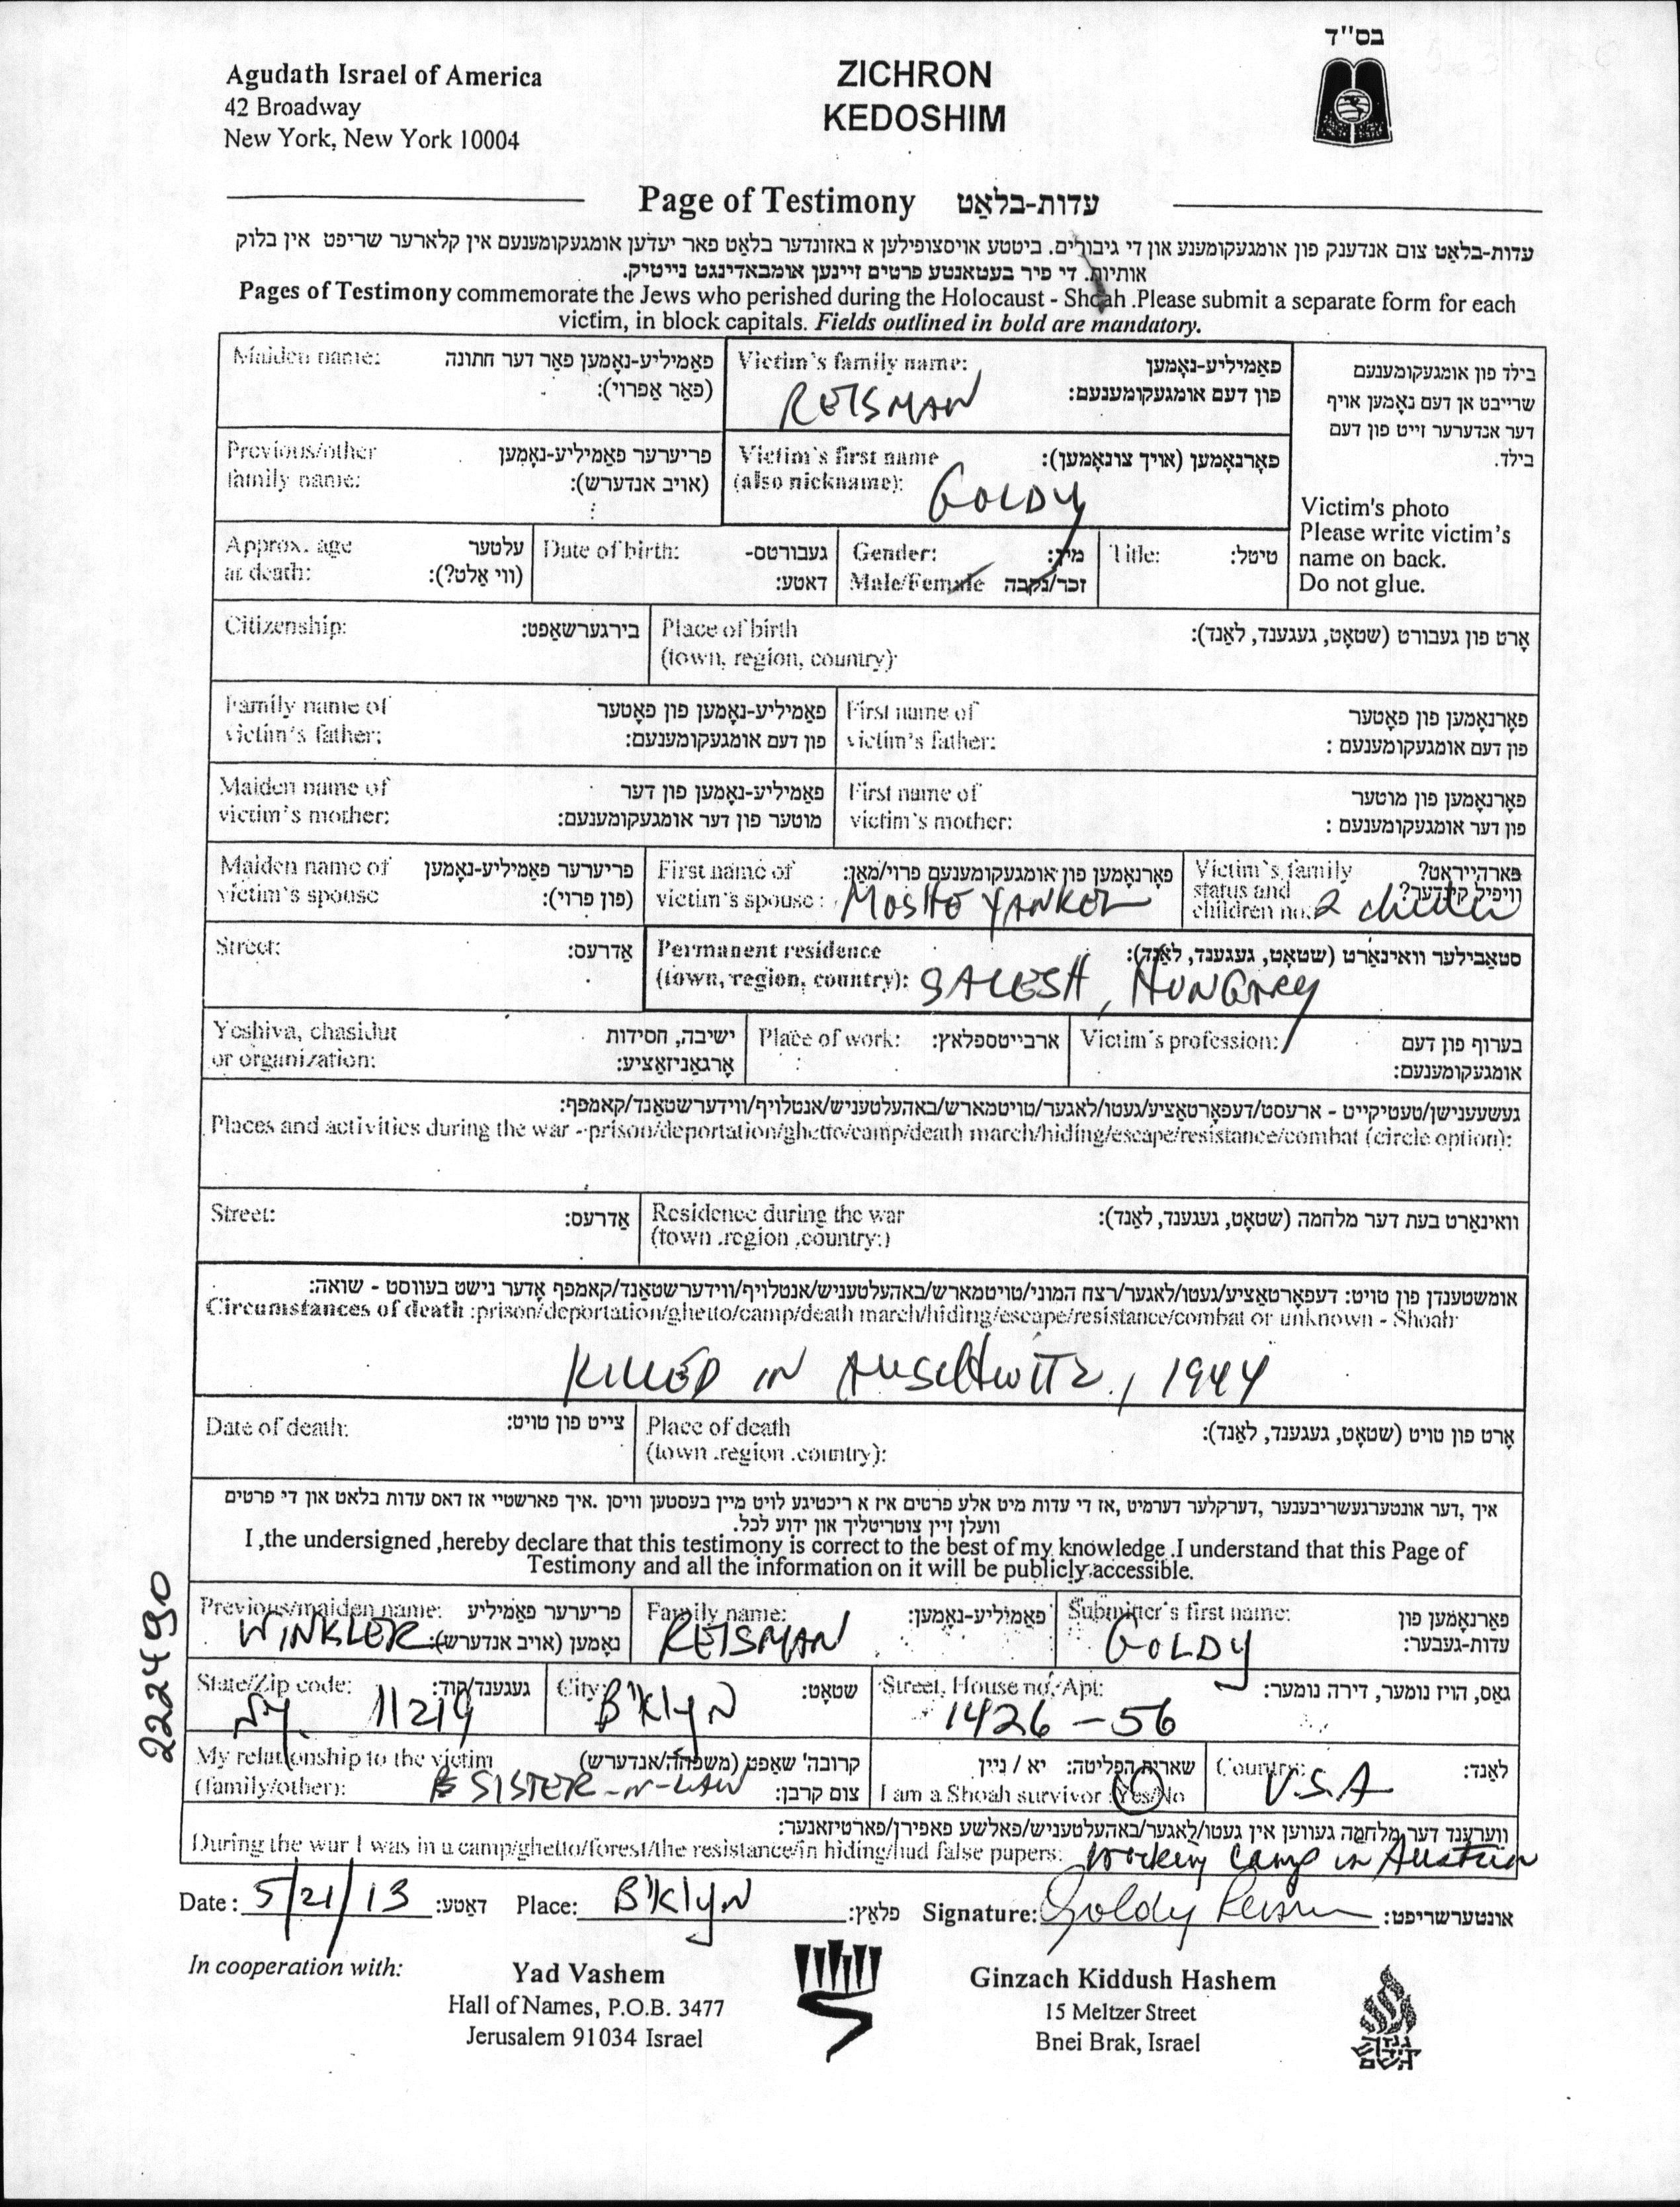 בס"ד
Agudath Israel of America
42 Broadway
New York, New York 10004
ZICHRON
KEDOSHIM
Page of Testimony עדות-בלאַט
עדות-בלאַט צום אנדענק פון אומגעקומענע און די גיבורים. ביטטע אויסצופילען א באזונדער בלאַט פאר יעדען אומגעקומענעם אין קלארער שריפט אין בלוק
אותיות. די פיר בעטאנטע פרטים זיינען אומבאדינגט נייטיק.
Pages of Testimony commemorate the Jews who perished during the Holocaust - Shoah .Please submit a separate form for each
victim, in block capitals. Fields outlined in bold are mandatory.
Maiden name: פאַמיליע-נאָמען פאַר דער חתונה
(פאַר אַפרוי):
Victim's family name: פאַמיליע-נאָמען
פון דעם אומגעקומענעם:
REISMAN
בילד פון אומגעקומענעם
שרייבט אן דעם נאָמען אויף
דער אנדערער זייט פון דעם
בילד.
Victim's photo
Please write victim's
name on back.
Do not glue.
Previous/other פריערער פאַמיליע-נאָמען
family name: (אויב אנדערש):
Victim's first name פאָרנאָמען (אויך צונאָמען):
(also nickname): GOLDY
Approx. age עלטער
at death: (ווי אַלט?):
Date of birth: געבורטס-
דאטע:
Gender: מין:
Male/Female זכר/נקבה
Title: טיטל:
Citizenship: בירגערשאַפט:
Place of birth אָרט פון געבורט (שטאָט, געגענד, לאַנד):
(town, region, country):
Family name of פאַמיליע-נאָמען פון פאָטער
victim's father: פון דעם אומגעקומענעם:
First name of פאָרנאָמען פון פאָטער
victim's father: פון דעם אומגעקומענעם :
Maiden name of פאַמיליע-נאָמען פון דער
victim's mother: מוטער פון דער אומגעקומענעם:
First name of פאָרנאָמען פון מוטער
victim's mother: פון דער אומגעקומענעם :
Maiden name of פריערער פאַמיליע-נאָמען
victim's spouse (פון פרוי):
First name of פאָרנאָמען פון אומגעקומענעם פרוי/מאַן:
victim's spouse : MOSHE YANKEL
Victim's family פארהייראַט?
status and וויפיל קינדער?
children no.: 2
Street: אַדרעס:
Permanent residence סטאַבילער וואוינאָרט (שטאָט, געגענד, לאַנד):
(town, region, country): SALESH, HUNGARY
Yeshiva, chasidut ישיבה, חסידות
or organization: אָרגאַניזאַציע:
Place of work: ארבייטספלאץ:
Victim's profession: בערוף פון דעם
אומגעקומענעם:
געשעענישן/טעטיקייט - ארעסט/דעפאָרטאַציע/געטו/לאגער/טויטמארש/באהעלטעניש/אנטלויף/ווידערשטאַנד/קאמפף:
Places and activities during the war - prison/deportation/ghetto/camp/death march/hiding/escape/resistance/combat (circle option):
Street: אַדרעס:
Residence during the war וואוינאָרט בעת דער מלחמה (שטאָט, געגענד, לאַנד):
(town .region ,country:)
אומשטענדן פון טויט: דעפאָרטאַציע/געטו/לאגער/רצח המוני/טויטמארש/באהעלטעניש/אנטלויף/ווידערשטאַנד/קאמפף אָדער נישט בעוואוסט - שואה:
Circumstances of death :prison/deportation/ghetto/camp/death march/hiding/escape/resistance/combat or unknown - Shoah
KILLED IN AUSCHWITZ, 1944
Date of death: צייט פון טויט:
Place of death אָרט פון טויט (שטאָט, געגענד, לאַנד):
(town .region .country):
איך ,דער אונטערגעשריבענער ,דערקלער דערמיט ,אז די עדות מיט אלע פרטים איז א ריכטיגע לויט מיין בעסטען וויסן .איך פארשטיי אז דאס עדות בלאט און די פרטים
וועלן זיין צוטריטליך און ידוע לכל.
I ,the undersigned ,hereby declare that this testimony is correct to the best of my knowledge .I understand that this Page of
Testimony and all the information on it will be publicly accessible.
Previous/maiden name: פריערער פאַמיליע
WINKLER נאָמען (אויב אנדערש):
Family name: פאַמיליע-נאָמען:
REISMAN
Submitter's first name: פאַרנאָמען פון
עדות-געבער:
GOLDY
State/Zip code: געגענד/קוד:
N.Y. 11219
City: שטאָט:
B'KlyN
Street, House no, Apt: גאַס, הויז נומער, דירה נומער:
1426 - 56
My relationship to the victim קרובה' שאַפט (משפחה/אנדערש)
(family/other): SISTER-IN-LAW צום קרבן:
שארית הפליטה: יא / ניין
I am a Shoah survivor :Yes/No
Country: לאַנד:
U.S.A
ווערענד דער מלחמה געווען אין געטו/לאַגער/באהעלטעניש/פאלשע פאפירן/פארטיזאנער:
During the war I was in a camp/ghetto/forest/the resistance/in hiding/had false papers: Working Camp in Austria
Date : 5/21/13 דאַטע: Place: B'KlyN פלאַץ: Signature: Goldy Reisman אונטערשריפט:
In cooperation with:
Yad Vashem
Hall of Names, P.O.B. 3477
Jerusalem 91034 Israel
Ginzach Kiddush Hashem
15 Meltzer Street
Bnei Brak, Israel
גנזך
קידוש
השם
222490